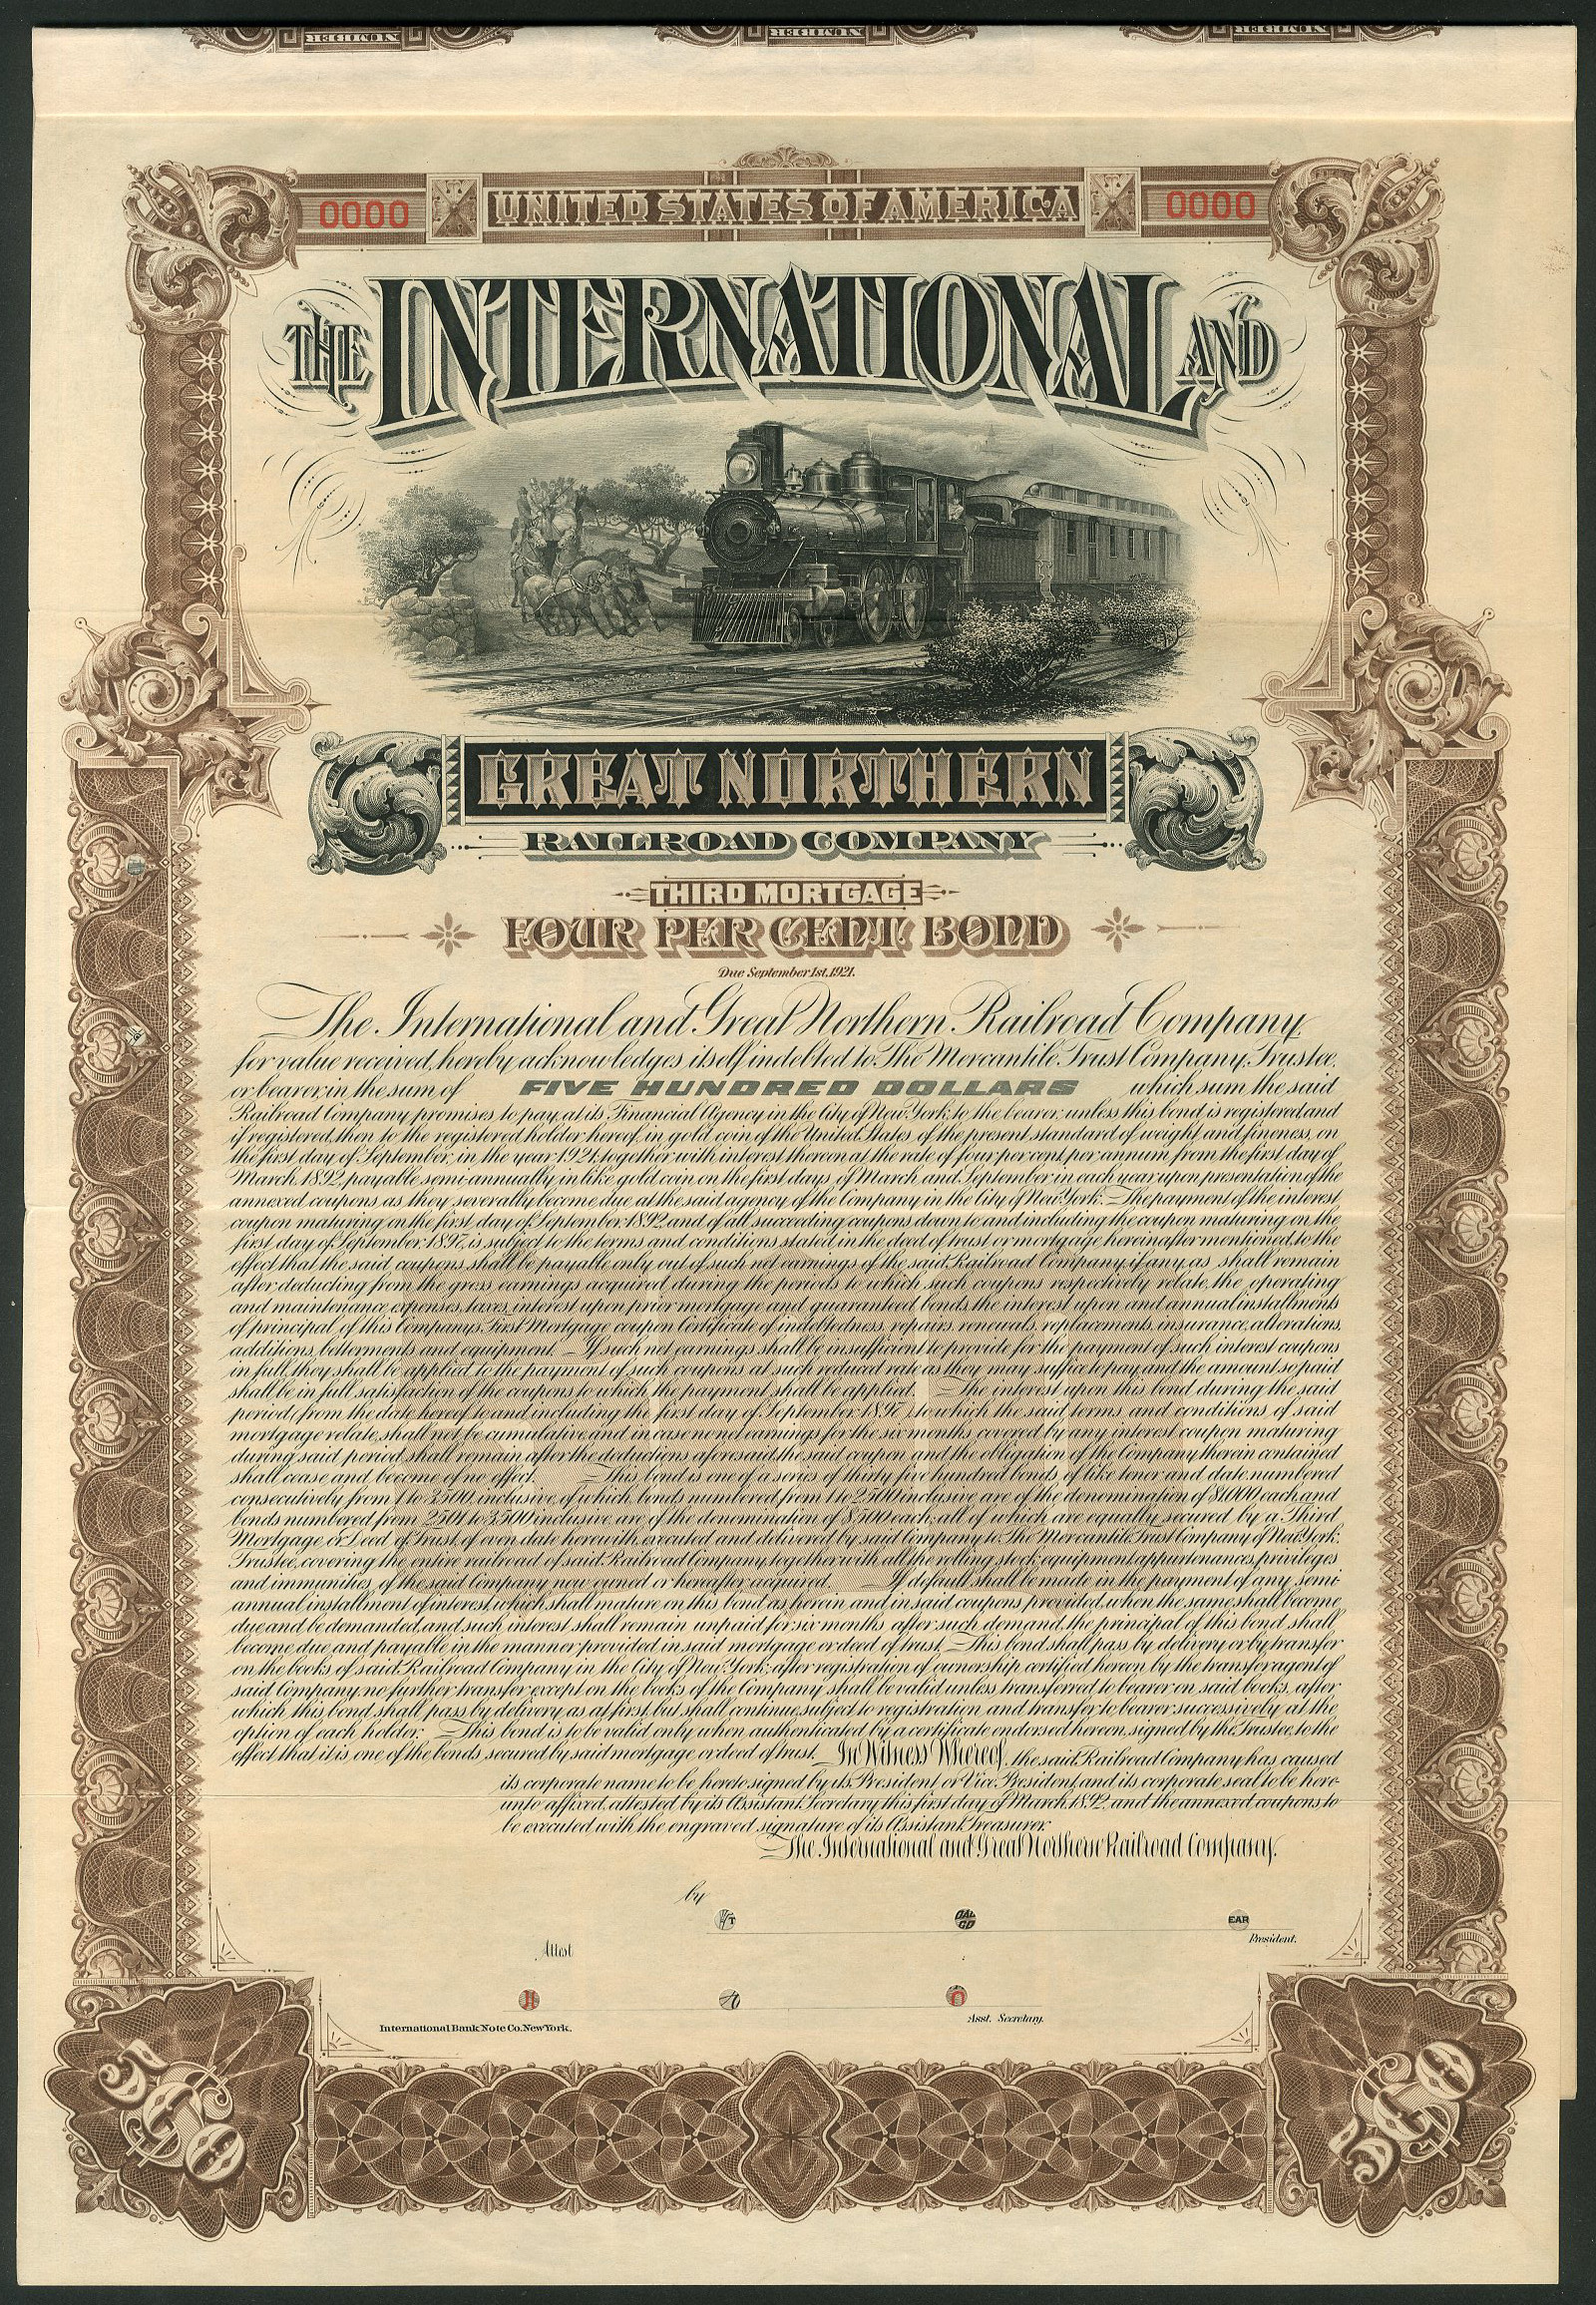 NUMBER NUMBER NUMBER
0000 UNITED STATES OF AMERICA 0000
THE INTERNATIONAL AND
GREAT NORTHERN
RAILROAD COMPANY
THIRD MORTGAGE
FOUR PER CENT BOND
Due September 1st, 1921.
The International and Great Northern Railroad Company,
for value received, hereby acknowledges itself indebted to The Mercantile Trust Company, Trustee,
or bearer, in the sum of FIVE HUNDRED DOLLARS which sum the said
Railroad Company promises to pay, at its Financial Agency in the City of New York, to the bearer, unless this bond is registered, and
if registered, then to the registered holder hereof, in gold coin of the United States of the present standard of weight and fineness, on
the first day of September, in the year 1921, together with interest thereon at the rate of four per cent, per annum from the first day of
March, 1892, payable semi-annually in like gold coin on the first days of March and September in each year upon presentation of the
annexed coupons as they severally become due at the said agency of the Company in the City of New York. The payment of the interest
coupon maturing on the first day of September 1892, and of all succeeding coupons down to and including the coupon maturing on the
first day of September 1897, is subject to the terms and conditions stated in the deed of trust or mortgage hereinafter mentioned, to the
effect that the said coupons shall be payable only out of such net earnings of the said Railroad Company if any, as shall remain
after deducting from the gross earnings acquired during the periods to which such coupons respectively relate, the operating
and maintenance expenses, taxes, interest upon prior mortgage and guaranteed bonds, the interest upon and annual installments
of principal of this Company's First Mortgage coupon Certificate of indebtedness, repairs, renewals, replacements, insurance, alterations,
additions, betterments and equipment. If such net earnings shall be insufficient to provide for the payment of such interest coupons
in full, they shall be applied to the payment of such coupons at such reduced rate as they may suffice to pay, and the amount so paid
shall be in full satisfaction of the coupons to which the payment shall be applied. The interest upon this bond during the said
period (from the date hereof to and including the first day of September 1897) to which the said terms and conditions of said
mortgage relate, shall not be cumulative, and in case no net earnings for the six months covered by any interest coupon maturing
during said period, shall remain after the deductions aforesaid, the said coupon and the obligation of the Company therein contained
shall cease and become of no effect. This bond is one of a series of thirty five hundred bonds of like tenor and date, numbered
consecutively from 1 to 3500, inclusive, of which bonds numbered from 1 to 2500 inclusive are of the denomination of $1,000 each, and
bonds numbered from 2501 to 3500 inclusive, are of the denomination of $500 each; all of which are equally secured by a Third
Mortgage or Deed of Trust, of even date herewith, executed and delivered by said Company to The Mercantile Trust Company of New York,
Trustee, covering the entire railroad of said Railroad Company, together with all the rolling stock, equipment, appurtenances, privileges
and immunities, of the said Company now owned or hereafter acquired. If default shall be made in the payment of any semi
annual installment of interest, which shall mature on this bond as herein and in said coupons provided, when the same shall become
due and be demanded, and such interest shall remain unpaid for six months after such demand, the principal of this bond shall
become due and payable in the manner provided, in said mortgage or deed of trust. This bond shall pass by delivery or by transfer
on the books of said Railroad Company in the City of New York; after registration of ownership certified hereon by the transfer agent of
said Company, no further transfer except on the books of the Company shall be valid unless transferred to bearer on said books, after
which this bond shall pass by delivery as at first, but shall continue subject to registration and transfer to bearer successively at the
option of each holder. This bond is to be valid only when authenticated by a certificate endorsed hereon, signed by the Trustee, to the
effect that it is one of the bonds secured by said mortgage or deed of trust. In Witness Whereof, the said Railroad Company has caused
its corporate name to be hereto signed by its President or Vice-President, and its corporate seal to be here-
unto affixed, attested by its Assistant Secretary this first day of March 1892, and the annexed coupons to
be executed with the engraved signature of its Assistant Treasurer.
The International and Great Northern Railroad Company.
by
EAR
President.
Attest
International Bank Note Co. New York.
Asst. Secretary.
$500 $500